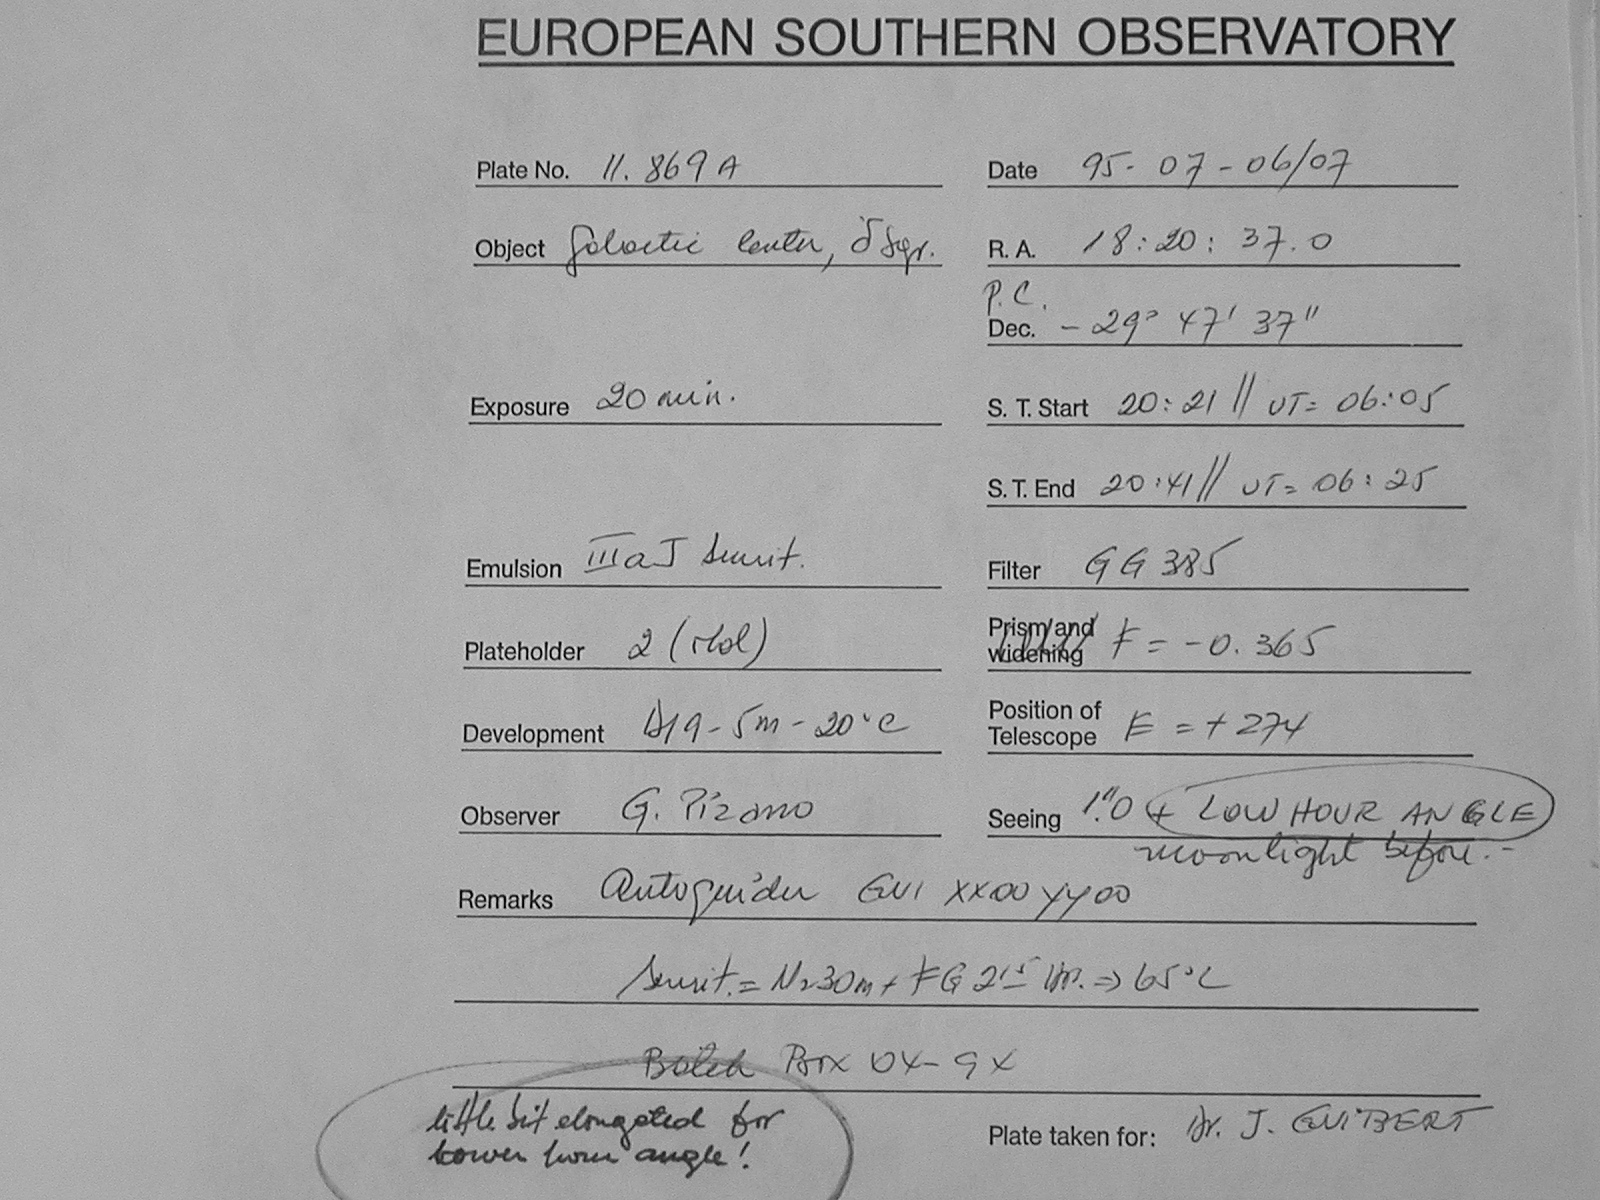 EUROPEAN SOUTHERN OBSERVATORY
Plate No. 11.869A
Date 95-07-06/07
Object Galactic Center, δ Sgr.
R. A. 18:20:37.0
P.C.
Dec. -29° 47' 37"
Exposure 20 min.
S. T. Start 20:21 // UT= 06:05
S. T. End 20:41 // UT= 06:25
Emulsion IIIaJ sensit.
Filter GG 385
Plateholder 2 (old)
Prism and widening F = -0.365
Development D19-5m-20°C
Position of Telescope E = + 274
Observer G. Pizarro
Seeing 1."0 + LOW HOUR ANGLE
moonlight before.-
Remarks Autoguider GUI XX00 YY00
Sensit.= N2 30m + FG 2 Hr. => 65°C
Batch Box
little bit elongated for
lower hour angle!
Plate taken for: Dr. J. GUIBERT